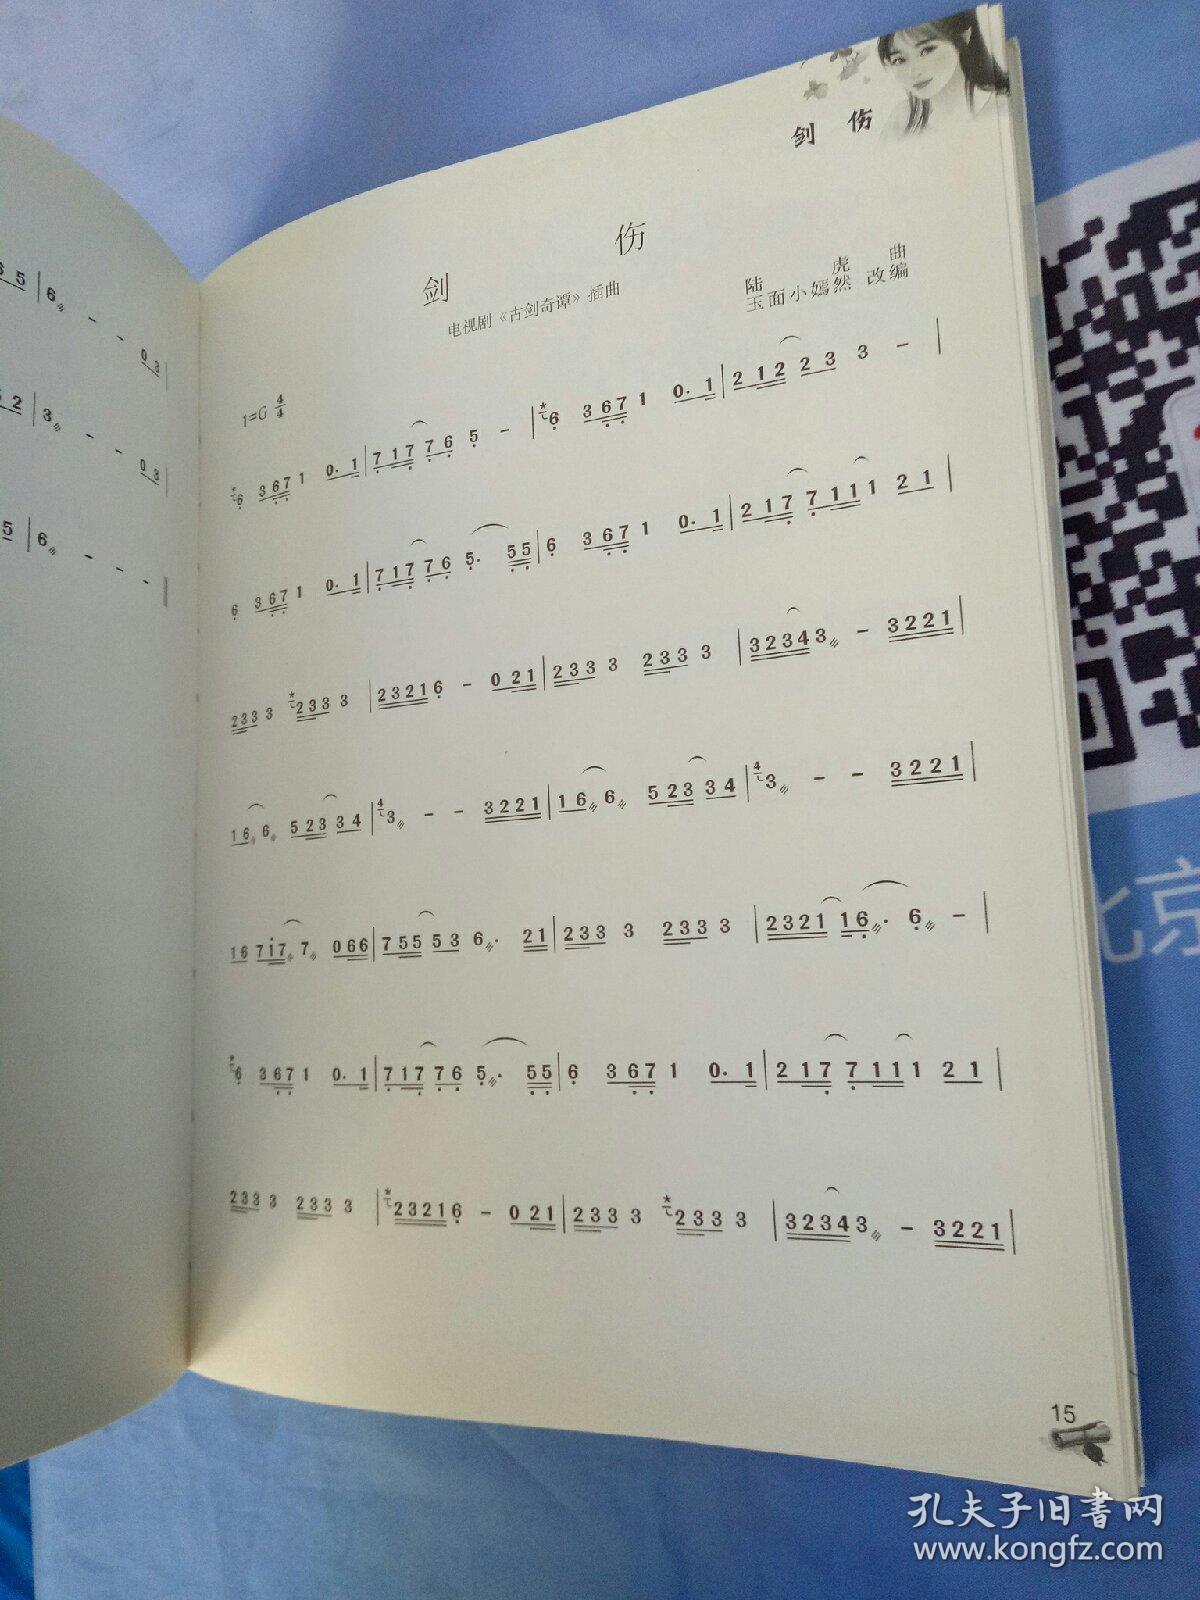 剑 伤
剑 伤
电视剧《古剑奇谭》插曲
陆 虎 曲
玉面小嫣然 改编
1=G 4/4
6 3 6 7 1 0. 1 | 7 1 7 7 6 5 - | 6 3 6 7 1 0. 1 | 2 1 2 2 3 3 - |
6 3 6 7 1 0. 1 | 7 1 7 7 6 5. 5 5 | 6 3 6 7 1 0. 1 | 2 1 7 7 1 1 1 2 1 |
2 3 3 3 2 3 3 3 | 2 3 2 1 6 - 0 2 1 | 2 3 3 3 2 3 3 3 | 3 2 3 4 3 - 3 2 2 1 |
1 6 6 5 2 3 3 4 | 4 3 - - 3 2 2 1 | 1 6 6 5 2 3 3 4 | 4 3 - - 3 2 2 1 |
1 6 7 1 7 7 0 6 6 | 7 5 5 5 3 6. 2 1 | 2 3 3 3 2 3 3 3 | 2 3 2 1 1 6. 6 - |
6 3 6 7 1 0. 1 | 7 1 7 7 6 5. 5 5 | 6 3 6 7 1 0. 1 | 2 1 7 7 1 1 1 2 1 |
2 3 3 3 2 3 3 3 | 2 3 2 1 6 - 0 2 1 | 2 3 3 3 2 3 3 3 | 3 2 3 4 3 - 3 2 2 1 |
15
6 5 | 6 - - 0 3 |
2 | 3 - - 0 3 |
5 | 6 - - -
北京
孔夫子旧书网
www.kongfz.com